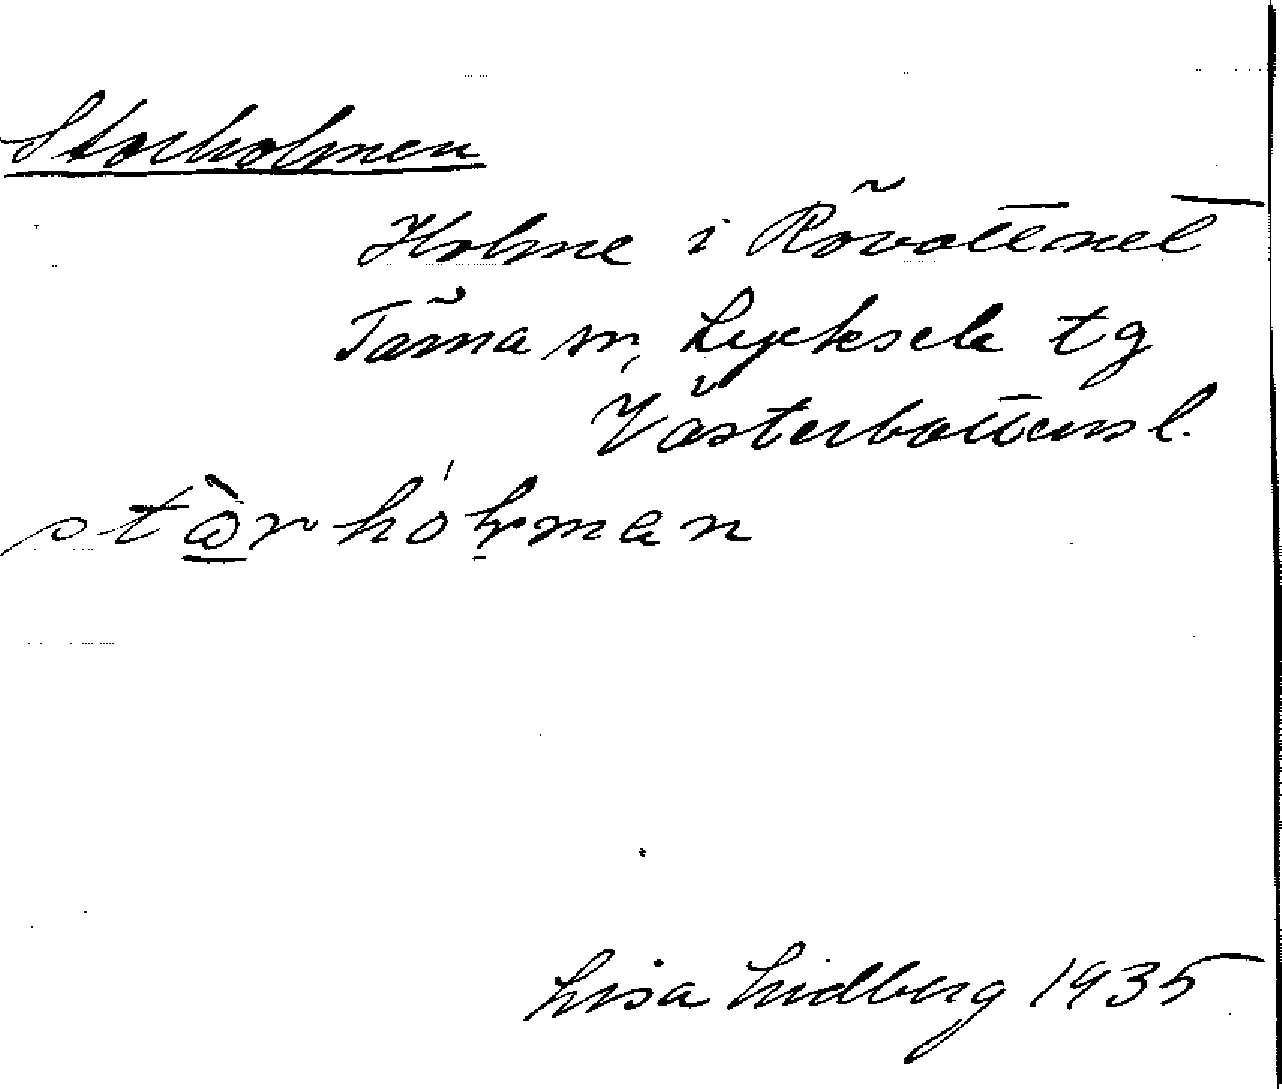 Storholmen
Holme i Rövattnet
Tärna sn, Lycksele tg
Västerbottens l.
Lisa Lidberg 1935